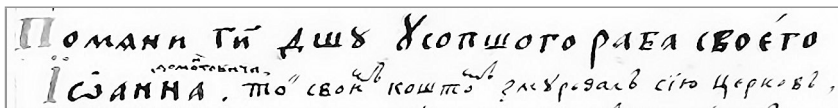 Помани ги дшу Ꙋсопшого раба своего
Іѡанна домотовича. то свои коштѡ змуровалъ сію Церковь,